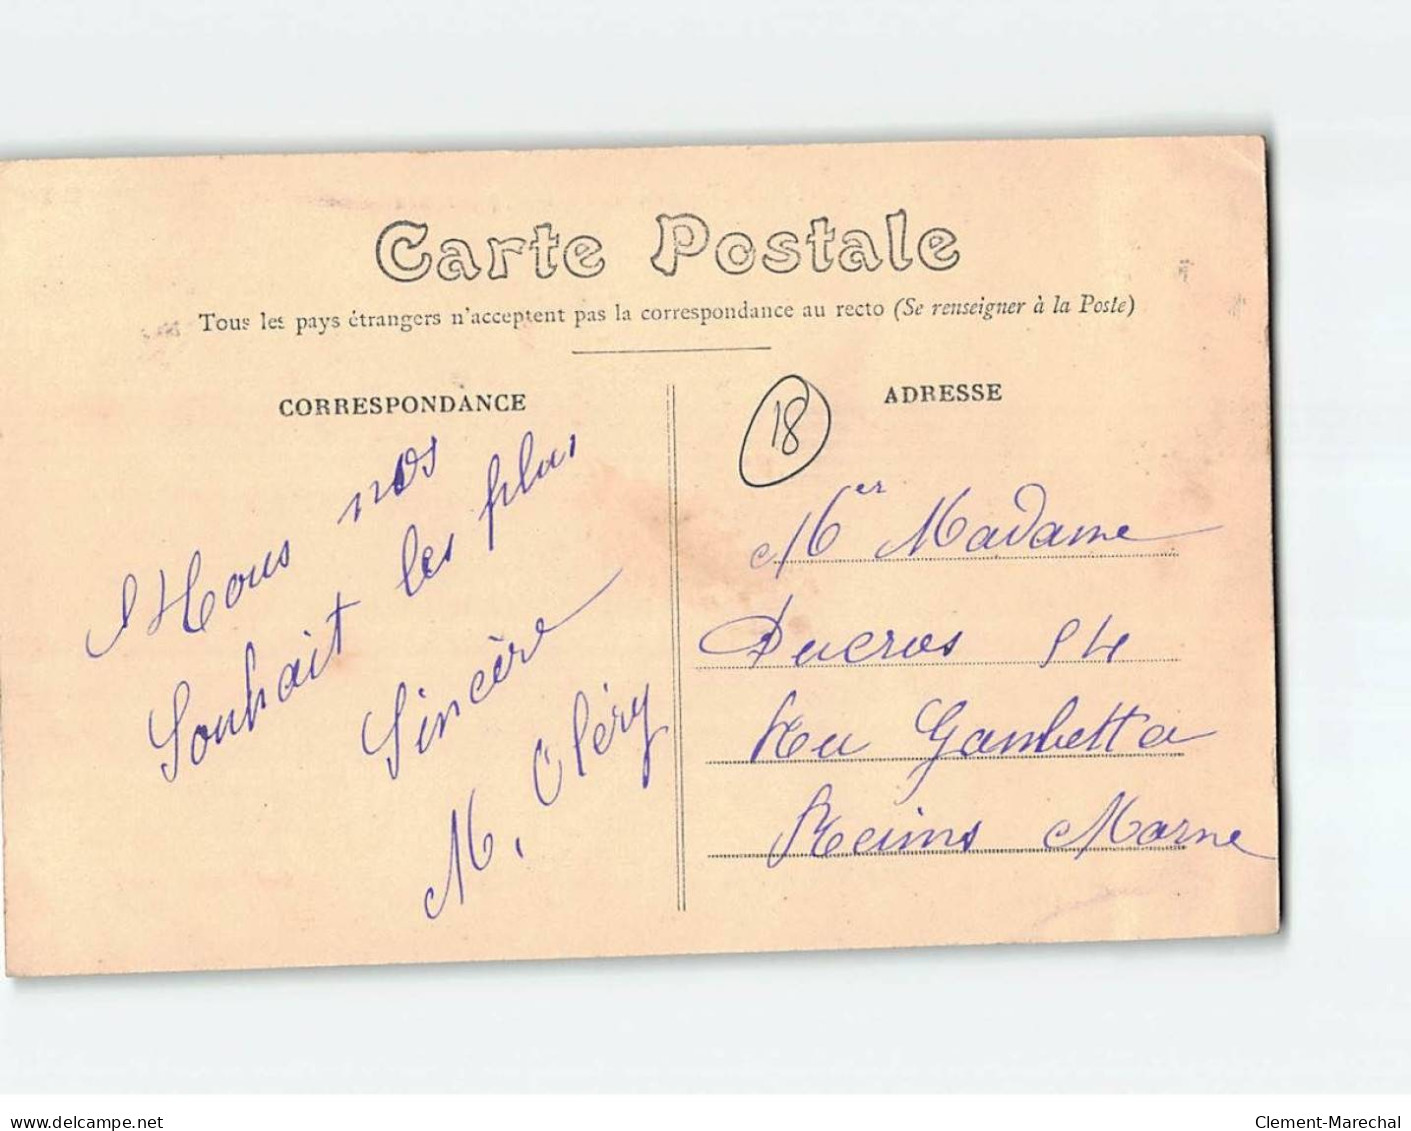 Carte Postale
Tous les pays étrangers n'acceptent pas la correspondance au recto (Se renseigner à la Poste)
CORRESPONDANCE
nos
Souhait les plus
Sincère
M. Cléry
18
ADRESSE
Mer Madame
Ducros 54
Rue Gambetta
Reims Marne
delcampe.net
Clement-Marechal